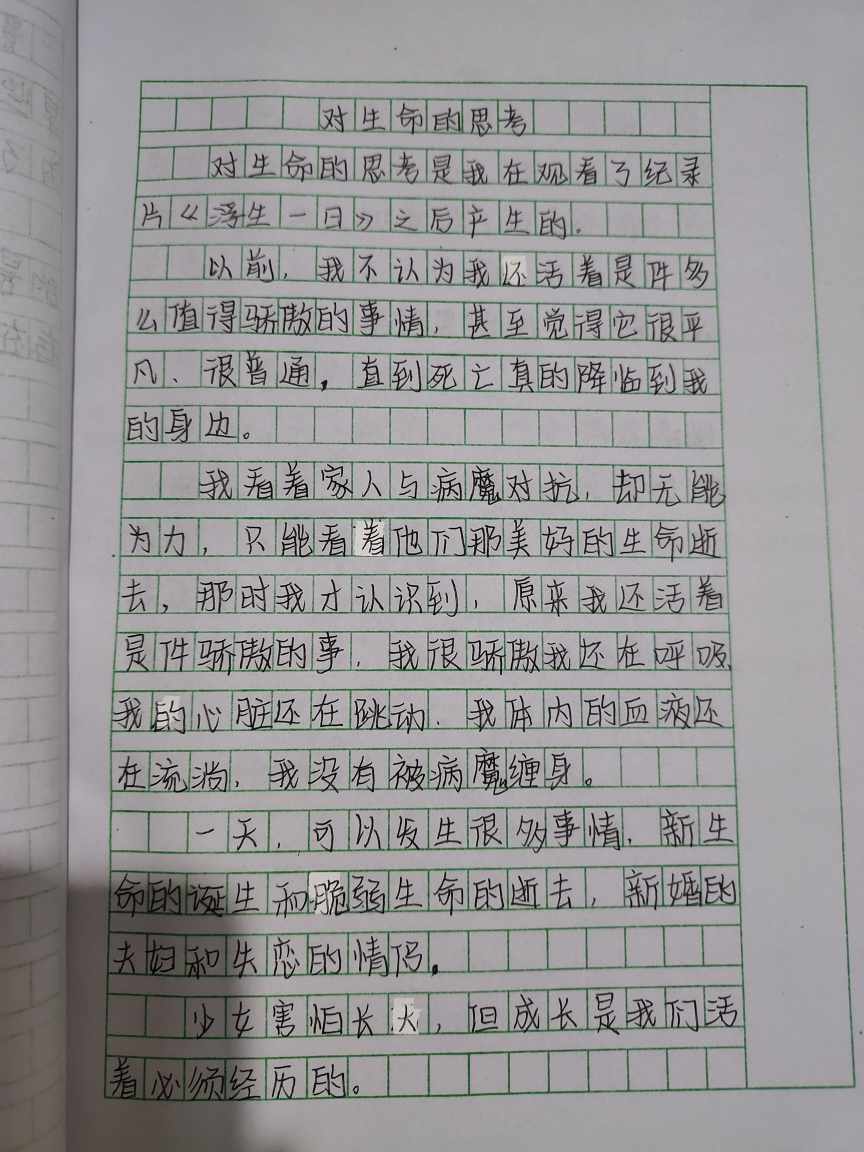 对生命的思考
对生命的思考是我在观看了纪录
片《浮生一日》之后产生的.
以前,我不认为我还活着是件多
么值得骄傲的事情,甚至觉得它很平
凡、很普通,直到死亡真的降临到我
的身边。
我看着家人与病魔对抗,却无能
为力,只能看着他们那美好的生命逝
去,那时我才认识到,原来我还活着
是件骄傲的事.我很骄傲我还在呼吸.
我的心脏还在跳动.我体内的血液还
在流淌,我没有被病魔缠身。
一天,可以发生很多事情.新生
命的诞生和脆弱生命的逝去,新婚的
夫妇和失恋的情侣.
少女害怕长大,但成长是我们活
着必须经历的。